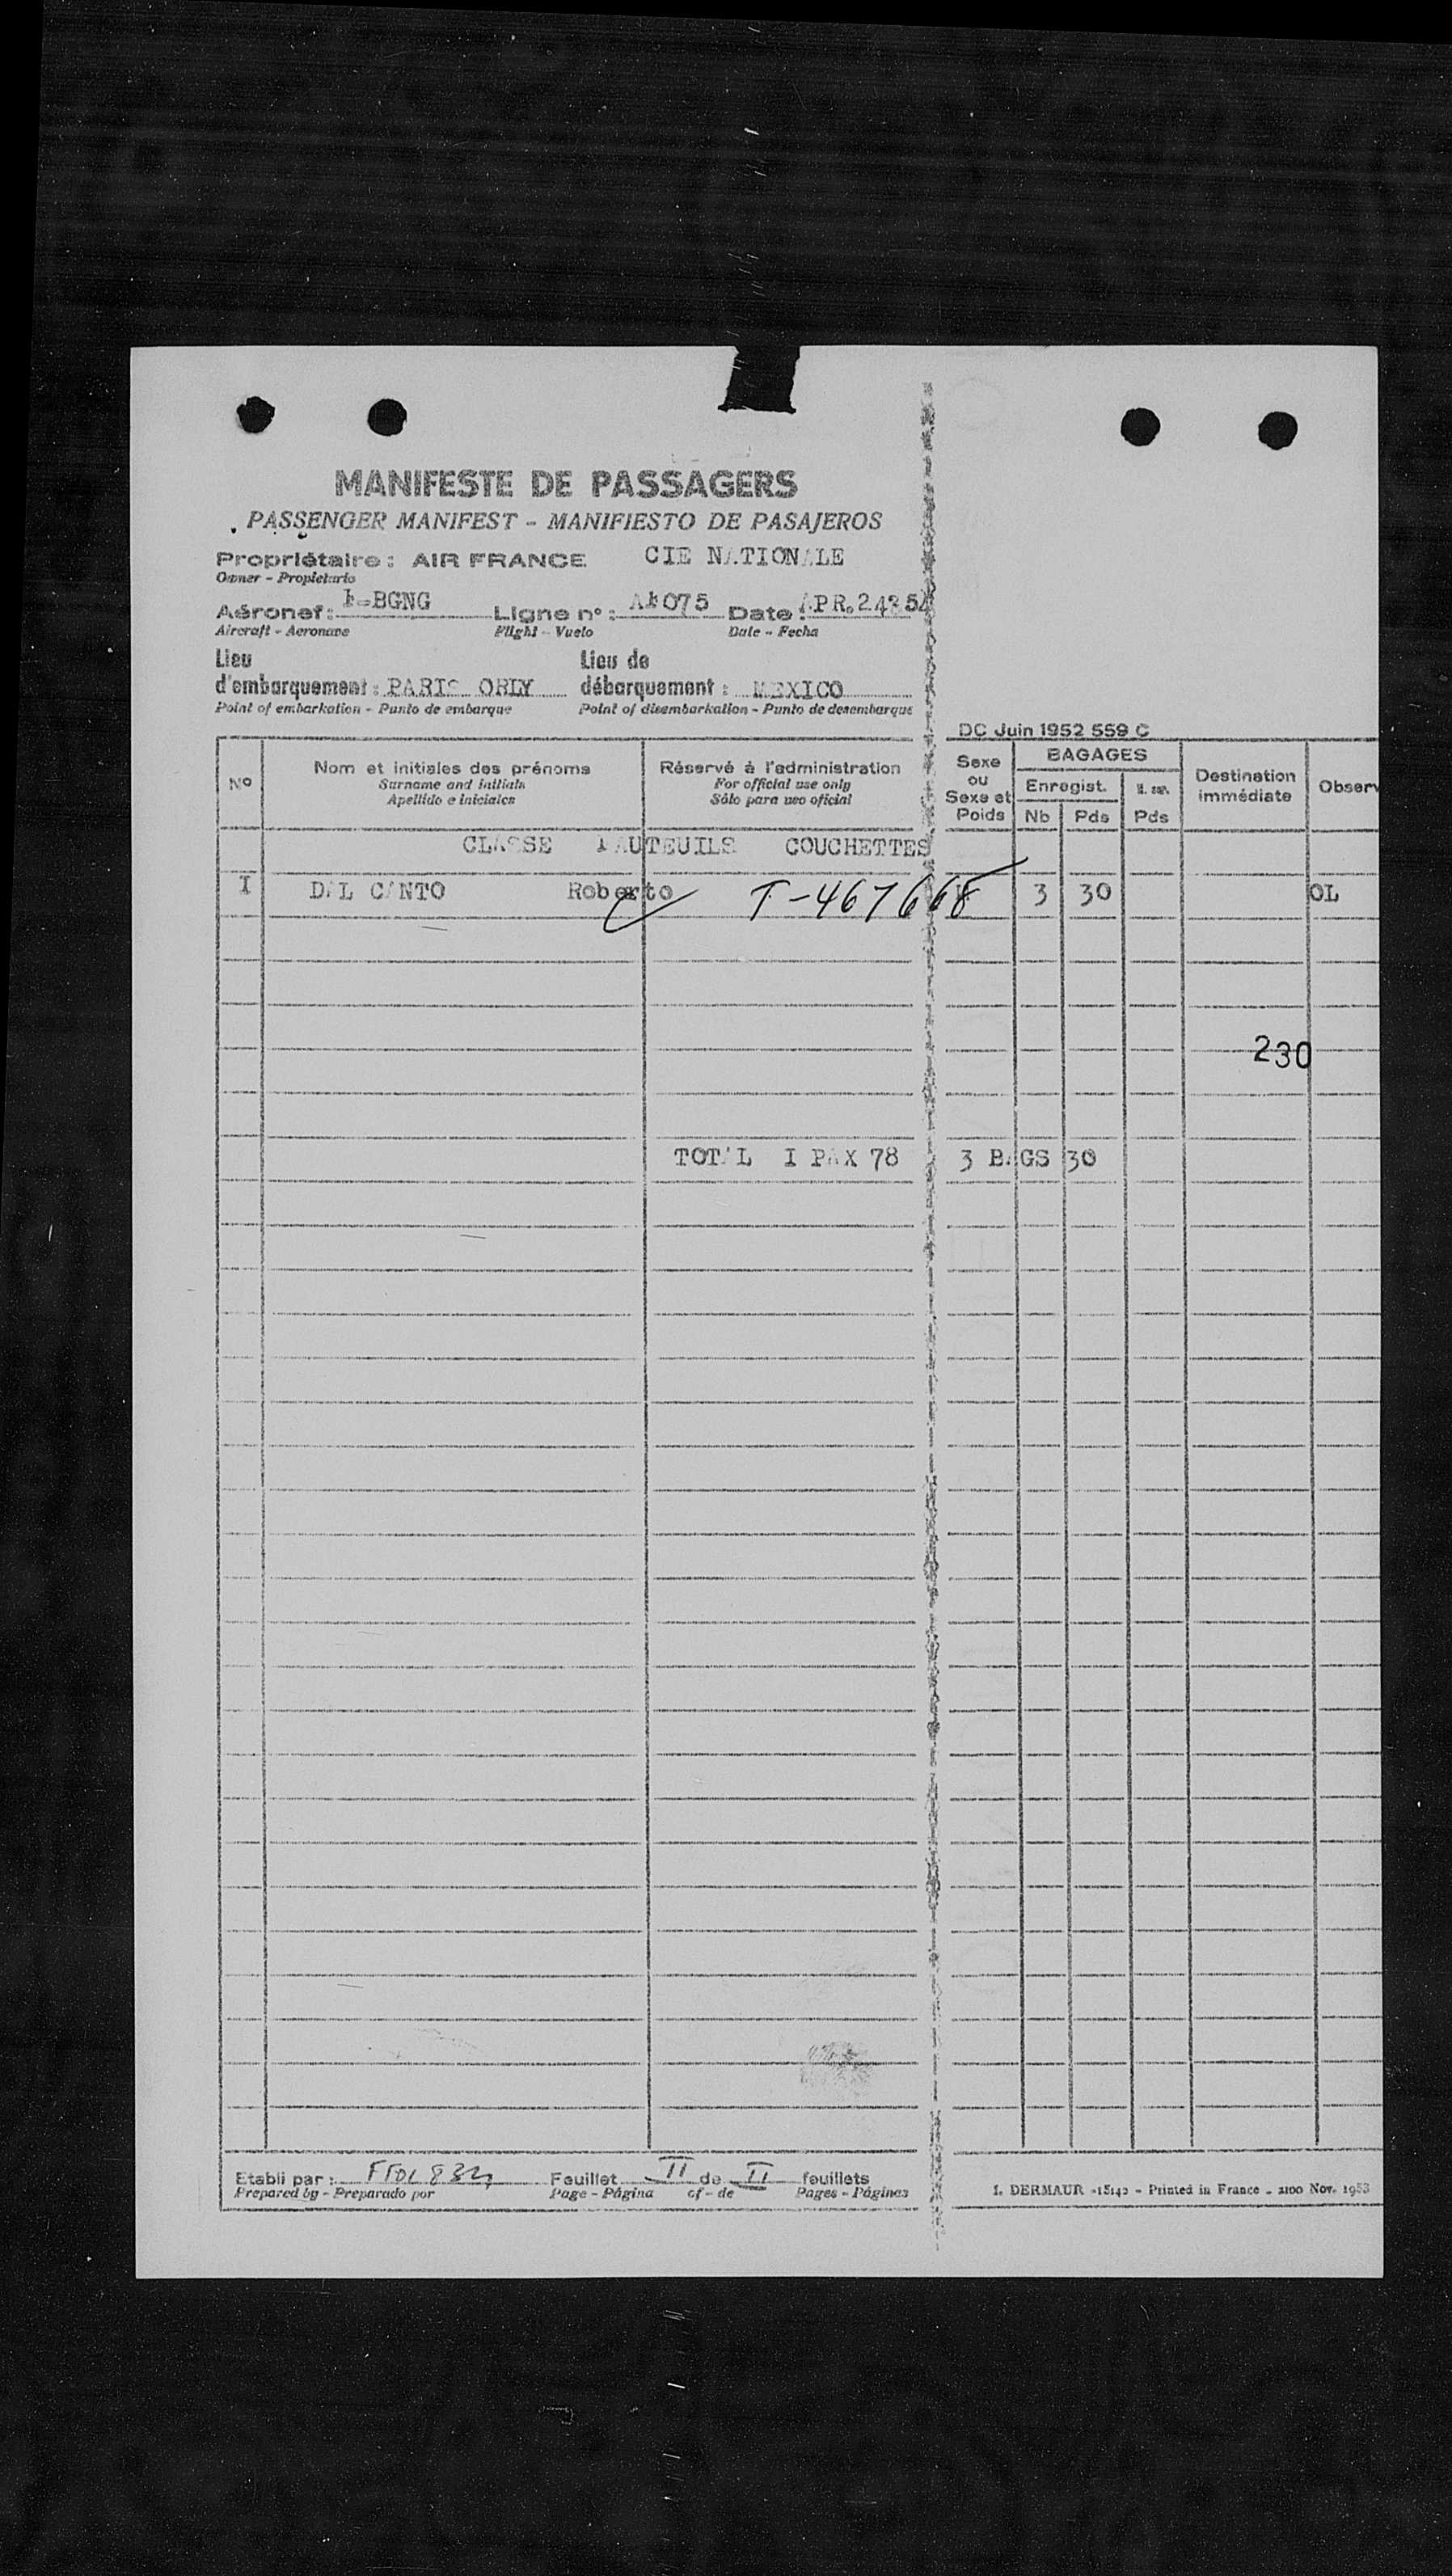 MANIFESTE DE PASSAGERS
PASSENGER MANIFEST - MANIFIESTO DE PASAJEROS
Propriétaire : AIR FRANCE CIE NATIONALE
Owner - Propietario
Aéronef : F-BGNG Ligne n° : AF 075 Date : APR. 24 54
Aircraft - Aeronave Flight - Vuelo Date - Fecha
Lieu Lieu de
d'embarquement : PARIS ORLY débarquement : MEXICO
Point of embarkation - Punto de embarque Point of disembarkation - Punto de desembarque
DC Juin 1952 559 C
N° Nom et initiales des prénoms Réservé à l'administration Sexe ou Sexe et Poids BAGAGES Destination immédiate Observ
Surname and initials For official use only Enregist.
Apellido e iniciales Sólo para uso oficial Nb Pds Pds
CLASSE FAUTEUILS COUCHETTES
I DAL CANTO Roberto T-467668 3 30 OL
230
TOTAL I PAX 78 3 BAGS 30
Etabli par : Feuillet II de II feuillets
Prepared by - Preparado por Page - Página of - de Pages - Páginas
I. DERMAUR -18142 - Printed in France - 2100 Nov. 1953